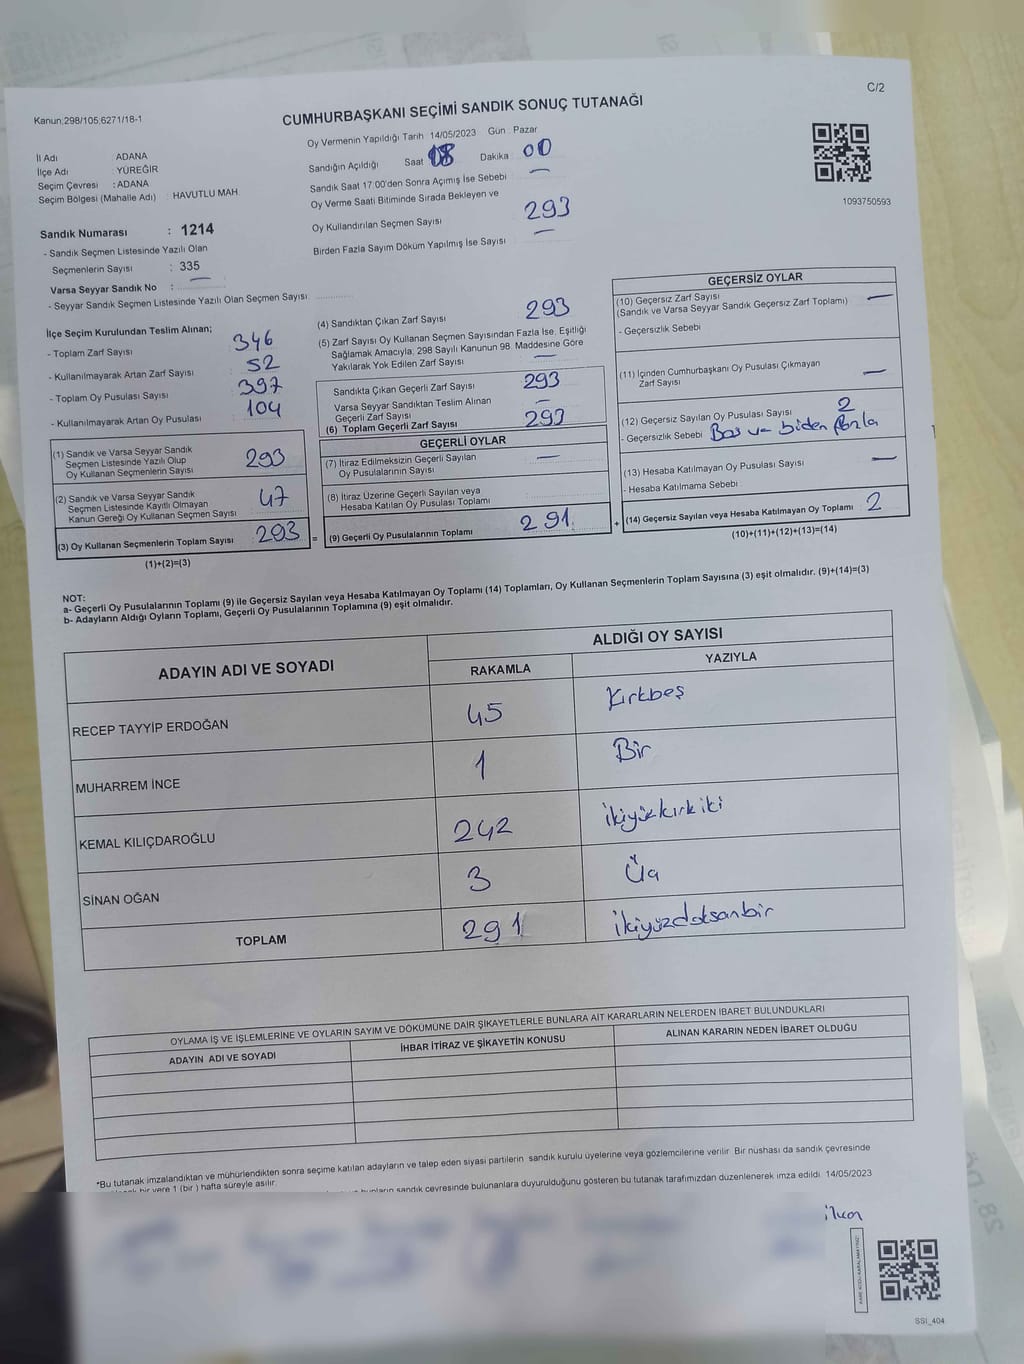 C/2
Kanun:298/105,6271/18-1
CUMHURBAŞKANI SEÇİMİ SANDIK SONUÇ TUTANAĞI
Oy Vermenin Yapıldığı Tarih 14/05/2023 Gün : Pazar
İl Adı : ADANA
İlçe Adı : YÜREĞİR
Seçim Çevresi : ADANA
Seçim Bölgesi (Mahalle Adı) : HAVUTLU MAH.
Sandığın Açıldığı Saat 18 Dakika 00
Sandık Saat 17.00'den Sonra Açılmış İse Sebebi —
Oy Verme Saati Bitiminde Sırada Bekleyen ve
Oy Kullandırılan Seçmen Sayısı 293
Birden Fazla Sayım Döküm Yapılmış İse Sayısı —
1093750593
Sandık Numarası : 1214
- Sandık Seçmen Listesinde Yazılı Olan
Seçmenlerin Sayısı : 335
Varsa Seyyar Sandık No : —
- Seyyar Sandık Seçmen Listesinde Yazılı Olan Seçmen Sayısı
İlçe Seçim Kurulundan Teslim Alınan;
- Toplam Zarf Sayısı 346
- Kullanılmayarak Artan Zarf Sayısı 52
- Toplam Oy Pusulası Sayısı 397
- Kullanılmayarak Artan Oy Pusulası 104
(1) Sandık ve Varsa Seyyar Sandık
Seçmen Listesinde Yazılı Olup
Oy Kullanan Seçmenlerin Sayısı 293
(2) Sandık ve Varsa Seyyar Sandık
Seçmen Listesinde Kayıtlı Olmayan
Kanun Gereği Oy Kullanan Seçmen Sayısı 47
(3) Oy Kullanan Seçmenlerin Toplam Sayısı 293 =
(1)+(2)=(3)
(4) Sandıktan Çıkan Zarf Sayısı 293
(5) Zarf Sayısı Oy Kullanan Seçmen Sayısından Fazla İse, Eşitliği
Sağlamak Amacıyla, 298 Sayılı Kanunun 98. Maddesine Göre
Yakılarak Yok Edilen Zarf Sayısı —
Sandıkta Çıkan Geçerli Zarf Sayısı 293
Varsa Seyyar Sandıktan Teslim Alınan
Geçerli Zarf Sayısı —
(6) Toplam Geçerli Zarf Sayısı 293
GEÇERLİ OYLAR
(7) İtiraz Edilmeksizin Geçerli Sayılan
Oy Pusulalarının Sayısı —
(8) İtiraz Üzerine Geçerli Sayılan veya
Hesaba Katılan Oy Pusulası Toplamı
(9) Geçerli Oy Pusulalarının Toplamı 291 +
GEÇERSİZ OYLAR
(10) Geçersiz Zarf Sayısı —
(Sandık ve Varsa Seyyar Sandık Geçersiz Zarf Toplamı)
- Geçersizlik Sebebi
(11) İçinden Cumhurbaşkanı Oy Pusulası Çıkmayan
Zarf Sayısı —
(12) Geçersiz Sayılan Oy Pusulası Sayısı 2
- Geçersizlik Sebebi Boş ve birden fazla
(13) Hesaba Katılmayan Oy Pusulası Sayısı —
- Hesaba Katılmama Sebebi
(14) Geçersiz Sayılan veya Hesaba Katılmayan Oy Toplamı 2
(10)+(11)+(12)+(13)=(14)
NOT:
a- Geçerli Oy Pusulalarının Toplamı (9) ile Geçersiz Sayılan veya Hesaba Katılmayan Oy Toplamı (14) Toplamları, Oy Kullanan Seçmenlerin Toplam Sayısına (3) eşit olmalıdır. (9)+(14)=(3)
b- Adayların Aldığı Oyların Toplamı, Geçerli Oy Pusulalarının Toplamına (9) eşit olmalıdır.
ADAYIN ADI VE SOYADI
ALDIĞI OY SAYISI
RAKAMLA YAZIYLA
RECEP TAYYİP ERDOĞAN 45 Kırkbeş
MUHARREM İNCE 1 Bir
KEMAL KILIÇDAROĞLU 242 ikiyüzkırkiki
SİNAN OĞAN 3 Üç
TOPLAM 291 ikiyüzdoksanbir
OYLAMA İŞ VE İŞLEMLERİNE VE OYLARIN SAYIM VE DÖKÜMÜNE DAİR ŞİKAYETLERLE BUNLARA AİT KARARLARIN NELERDEN İBARET BULUNDUKLARI
ADAYIN ADI VE SOYADI İHBAR İTİRAZ VE ŞİKAYETİN KONUSU ALINAN KARARIN NEDEN İBARET OLDUĞU
*Bu tutanak imzalandıktan ve mühürlendikten sonra seçime katılan adayların ve talep eden siyasi partilerin sandık kurulu üyelerine veya gözlemcilerine verilir. Bir nüshası da sandık çevresinde
bir yere 1 (bir) hafta süreyle asılır.
sandık çevresinde bulunanlara duyurulduğunu gösteren bu tutanak tarafımızdan düzenlenerek imza edildi. 14/05/2023
SSI_404